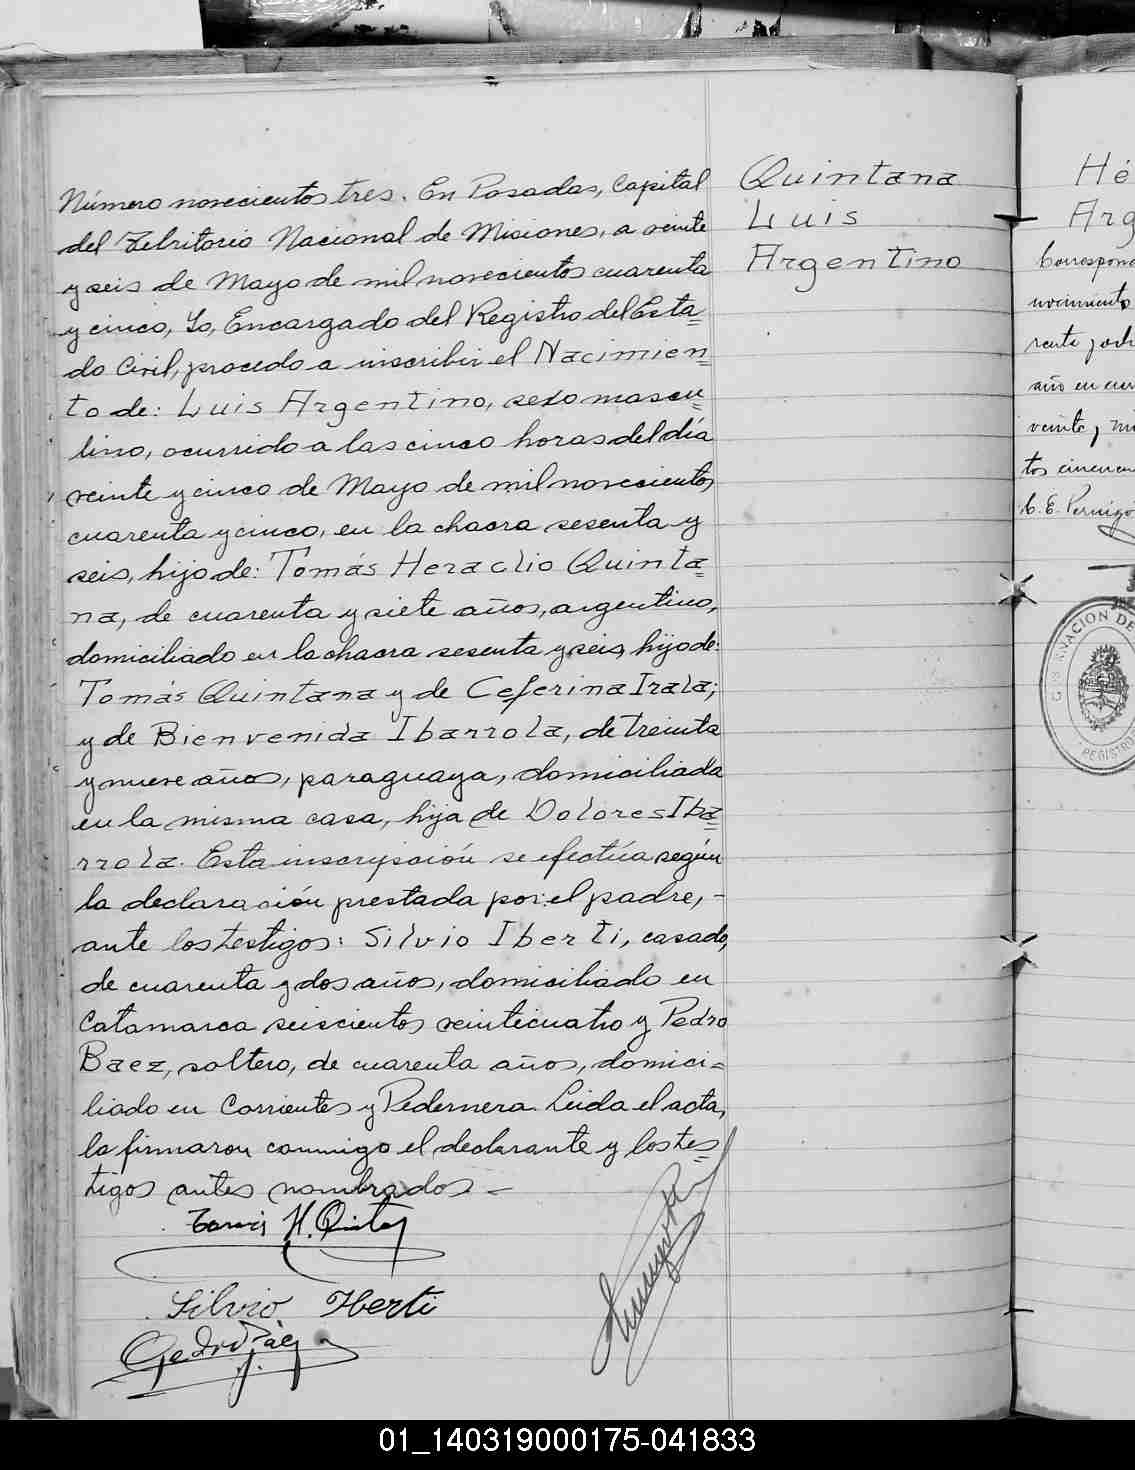 Número novecientos tres. En Posadas, Capital
del Territorio Nacional de Misiones, a veinte
y seis de Mayo de mil novecientos cuarenta
y cinco, Yo, Encargado del Registro del Esta=
do Civil, procedo a inscribir el Nacimien=
to de: Luis Argentino, sexo mascu=
lino, ocurrido a las cinco horas del día
veinte y cinco de Mayo de mil novecientos
cuarenta y cinco, en la chacra sesenta y
seis, hijo de: Tomás Heraclio Quinta=
na, de cuarenta y siete años, argentino,
domiciliado en la chacra sesenta y seis, hijo de:
Tomás Quintana y de Ceferina Irala;
y de Bienvenida Ibarrola, de treinta
y nueve años, paraguaya, domiciliada
en la misma casa, hija de Dolores Iba=
rrola. Esta inscripción se efectúa según
la declaración prestada por: el padre, -
ante los testigos: Silvio Iberti, casado,
de cuarenta y dos años, domiciliado en
Catamarca seiscientos veinticuatro y Pedro
Baez, soltero, de cuarenta años, domici=
liado en Corrientes y Pedernera. Leida el acta,
la firmaron conmigo el declarante y los tes=
tigos antes nombrados. -
Tomás H. Quintana
Silvio Iberti
Pedro Báez
Quintana
Luis
Argentino
Hé
Arg
Correspond
nocimiento
año en cur
veinte y
tos cincuen
REGISTRO
01_140319000175-041833